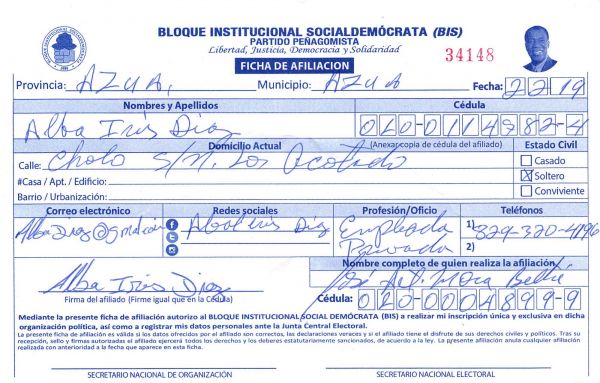 BLOQUE INSTITUCIONAL SOCIALDEMÓCRATA (BIS)
PARTIDO PEÑAGOMISTA
Libertad, Justicia, Democracia y Solidaridad
34148
FICHA DE AFILIACION
Provincia: AZUA, Municipio: AZUA Fecha: 2 2 19
Nombres y Apellidos Cédula
Alba Iris Diaz 010-0114982-4
Domicilio Actual (Anexar copia de cédula del afiliado) Estado Civil
Calle: Cholo S/N. Los
Casado
#Casa / Apt. / Edificio: X Soltero
Barrio / Urbanización: Conviviente
Correo electrónico Redes sociales Profesión/Oficio Teléfonos
Empleada 1) 829-320-4196
Privada 2)
Nombre completo de quien realiza la afiliación
Alba Iris Diaz José
Firma del afiliado (Firme igual que en la Cédula) Cédula: 010-0004899-9
Mediante la presente ficha de afiliación autorizo al BLOQUE INSTITUCIONAL SOCIAL DEMÓCRATA (BIS) a realizar mi inscripción única y exclusiva en dicha
organización política, así como a registrar mis datos personales ante la Junta Central Electoral.
La presente ficha de afiliación es válida si los datos ofrecidos por el afiliado son correctos, las declaraciones veraces y si el afiliado tiene el disfrute de sus derechos civiles y políticos. Tras su
recepción, sello y firmas autorizadas el afiliado ejercerá todos los derechos y los deberes estatutariamente sancionados, de acuerdo a la ley. La presente afiliación anula cualquier afiliación
realizada con anterioridad a la fecha que aparece en esta ficha.
SECRETARIO NACIONAL DE ORGANIZACIÓN SECRETARIO NACIONAL ELECTORAL